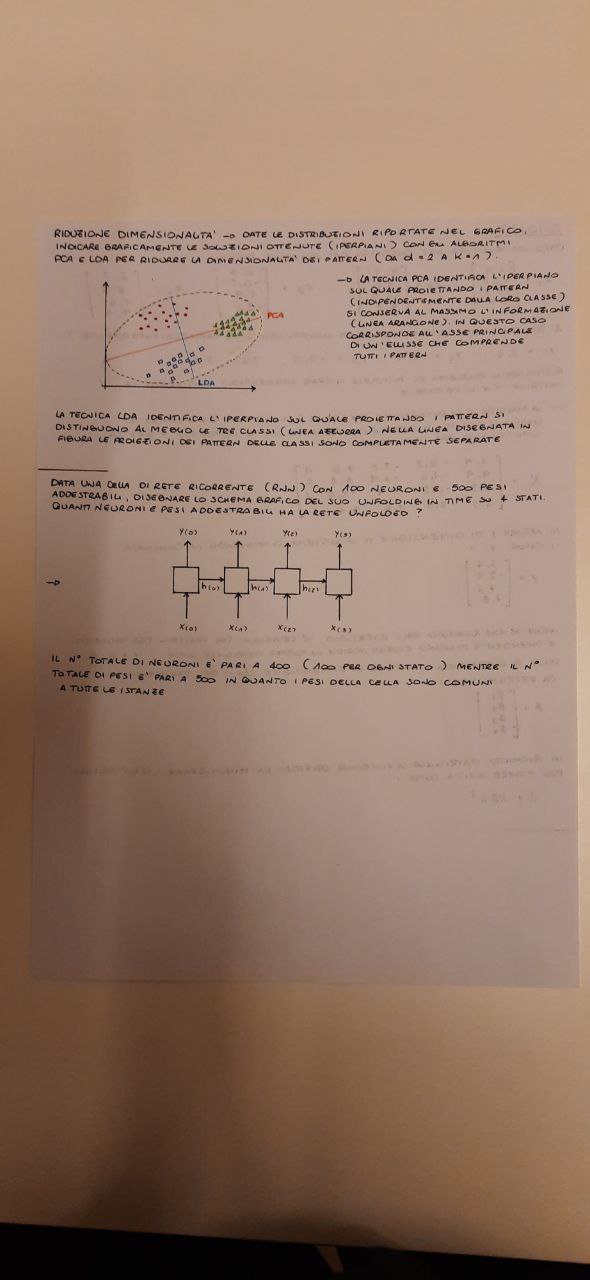 RIDUZIONE DIMENSIONALITA' → DATE LE DISTRIBUZIONI RIPORTATE NEL GRAFICO,
INDICARE GRAFICAMENTE LE SOLUZIONI OTTENUTE (IPERPIANI) CON GLI ALGORITMI
PCA E LDA PER RIDURRE LA DIMENSIONALITA' DEI PATTERN (DA d = 2 A K = 1).
→ LA TECNICA PCA IDENTIFICA L'IPERPIANO
SUL QUALE PROIETTANDO I PATTERN
(INDIPENDENTEMENTE DALLA LORO CLASSE)
SI CONSERVA AL MASSIMO L'INFORMAZIONE
(LINEA ARANCIONE). IN QUESTO CASO
CORRISPONDE ALL'ASSE PRINCIPALE
DI UN'ELLISSE CHE COMPRENDE
TUTTI I PATTERN
PCA
LDA
LA TECNICA LDA IDENTIFICA L'IPERPIANO SUL QUALE PROIETTANDO I PATTERN SI
DISTINGUONO AL MEGLIO LE TRE CLASSI (LINEA AZZURRA). NELLA LINEA DISEGNATA IN
FIGURA LE PROIEZIONI DEI PATTERN DELLE CLASSI SONO COMPLETAMENTE SEPARATE
DATA UNA CELLA DI RETE RICORRENTE (RNN) CON 100 NEURONI E 500 PESI
ADDESTRABILI, DISEGNARE LO SCHEMA GRAFICO DEL SUO UNFOLDING IN TIME SU 4 STATI.
QUANTI NEURONI E PESI ADDESTRABILI HA LA RETE UNFOLDED?
Y(0) Y(1) Y(2) Y(3)
→
h(0) h(1) h(2)
X(0) X(1) X(2) X(3)
IL N° TOTALE DI NEURONI E' PARI A 400 (100 PER OGNI STATO) MENTRE IL N°
TOTALE DI PESI E' PARI A 500 IN QUANTO I PESI DELLA CELLA SONO COMUNI
A TUTTE LE ISTANZE